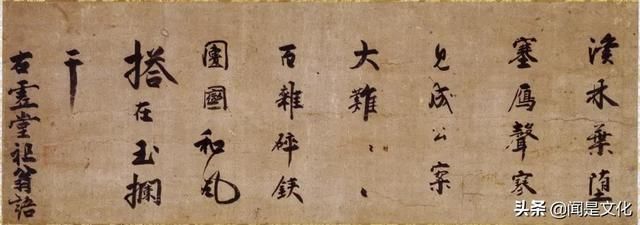 木葉堕
塞鴈聲寒
見成公案
大難〻〻
百雜碎鉄
團圞和風
搭在玉欄
干
右虚堂祖翁語
头条 @闻是文化